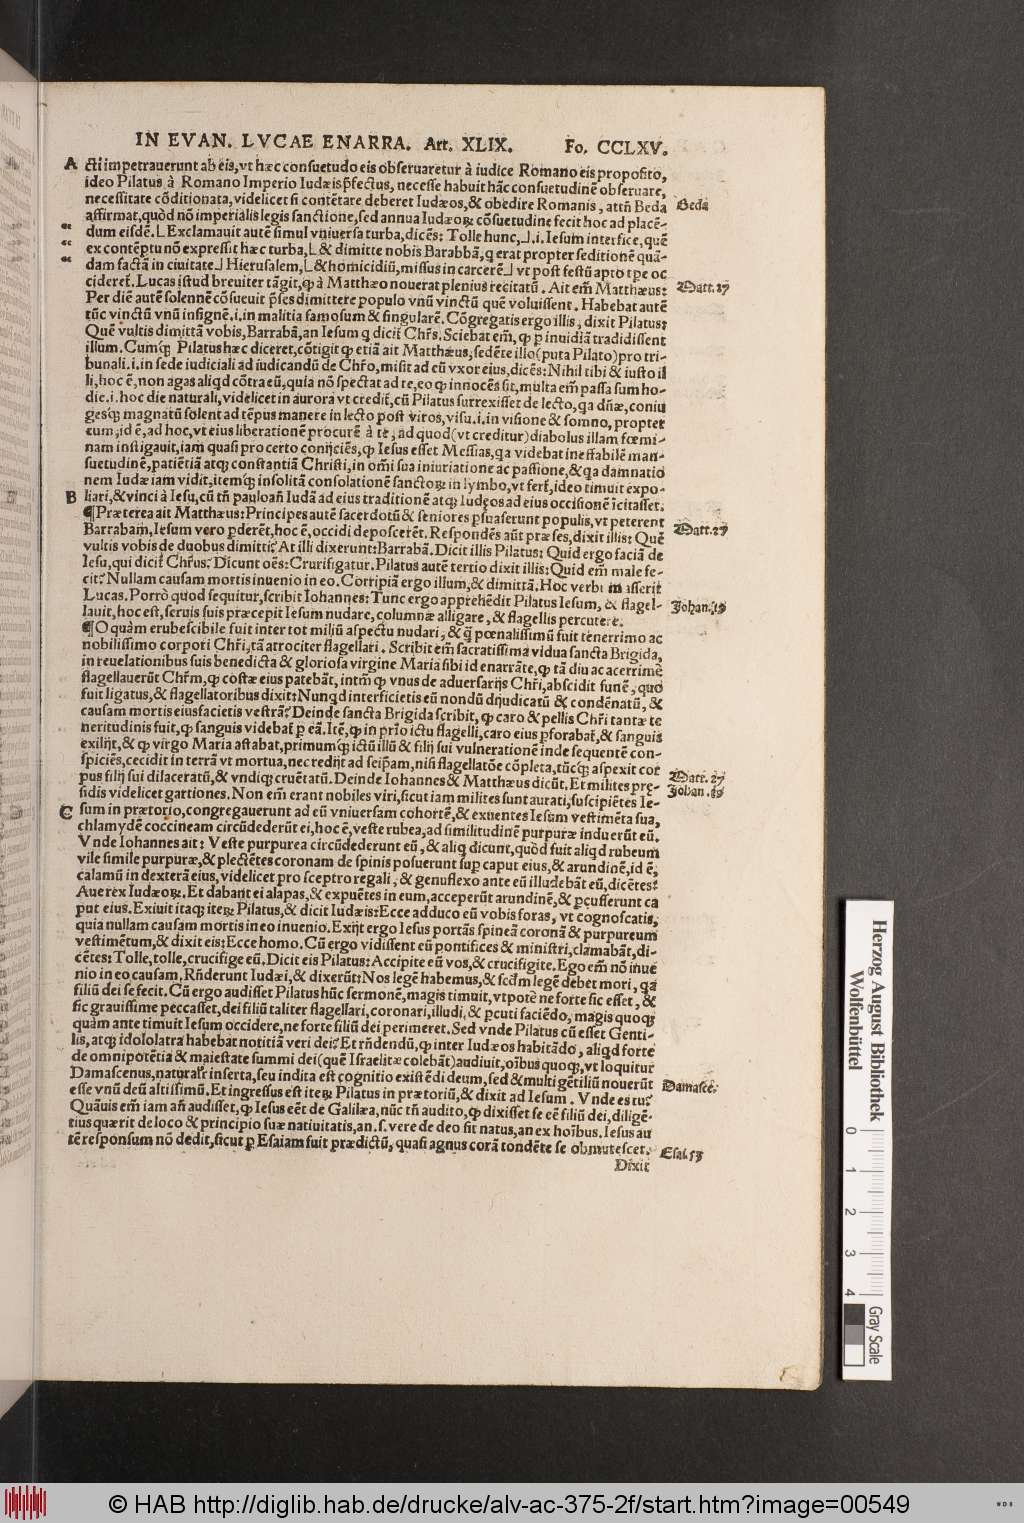 IN EVAN. LVCAE ENARRA. Art. XLIX. Fo. CCLXV.
A cti impetrauerunt ab eis, vt hæc consuetudo eis obseruaretur à iudice Romano eis proposito,
ideo Pilatus à Romano Imperio Iudæis p̄fectus, necesse habuit hāc consuetudinē obseruare,
necessitate cōditionata, videlicet si contētare deberet Iudæos, & obedire Romanis, attn̄ Beda
Beda
affirmat, quòd nō imperialis legis sanctione, sed annua Iudæoꝝ cōsuetudine fecit hoc ad placē-
dum eisdē. ⌊Exclamauit autē simul vniuersa turba, dicēs: Tolle hunc,⌋.i. Iesum interfice, quē
ex contēptu nō expressit hæc turba, ⌊& dimitte nobis Barabbā, q erat propter seditionē quā-
dam factā in ciuitate⌋ Hierusalem, ⌊& homicidiū, missus in carcerē⌋ vt post festū apto tꝑe oc
cideret̄. Lucas istud breuiter tāgit, ꝙ à Matthæo nouerat plenius recitatū. Ait em̄ Matthæus:
Matt.27
Per diē autē solennē cōsueuit p̄ses dimittere populo vnū vinctū quē voluissent. Habebat autē
tūc vinctū vnū insignē.i. in malitia famosum & singularē. Cōgregatis ergo illis, dixit Pilatus:
Quē vultis dimittā vobis, Barrabā, an Iesum q dicit̄ Chr̄s. Sciebat em̄, ꝙ ꝑ inuidiā tradidissent
illum. Cumq̄ꝫ Pilatus hæc diceret, cōtigit ꝙ etiā ait Matthæus, sedēte illo (puta Pilato) pro tri-
bunali.i. in sede iudiciali ad iudicandū de Chr̄o, misit ad eū vxor eius, dicēs: Nihil tibi & iusto il
li, hoc ē, non agas aliqd cōtra eū, quia nō spectat ad te, eo ꝙ innocēs sit, multa em̄ passa sum ho-
die.i. hoc die naturali, videlicet in aurora vt credit̄, cū Pilatus surrexisset de lecto, qa dn̄æ, coniu
gesqꝫ magnatū solent ad tēpus manere in lecto post viros, visu.i. in visione & somno, propter
eum, id ē, ad hoc, vt eius liberationē procurē à te, ad quod (vt creditur) diabolus illam fœmi-
nam instigauit, iam quasi pro certo conijciēs, ꝙ Iesus esset Messias, qa videbat ineffabilē man-
suetudinē, patiētiā atqꝫ constantiā Christi, in om̄i sua iniuriatione ac passione, & qa damnatio
nem Iudæ iam vidit, itemqꝫ insolitā consolationē sanctoꝝ in lymbo, vt fert̄, ideo timuit expo-
B liari, & vinci à Iesu, cū tn̄ pauloan̄ Iudā ad eius traditionē atqꝫ Iudęos ad eius occisionē īcitasset.
¶Præterea ait Matthæus: Principes autē sacerdotū & seniores ꝑsuaserunt populis, vt peterent
Barrabam, Iesum vero ꝑderēt, hoc ē, occidi deposcerēt. Respondēs aūt præses, dixit illis: Quē
Matt.27
vultis vobis de duobus dimitti? At illi dixerunt: Barrabā. Dicit illis Pilatus: Quid ergo faciā de
Iesu, qui dicit̄ Chr̄us? Dicunt oēs: Crucifigatur. Pilatus autē tertio dixit illis: Quid em̄ male fe-
cit? Nullam causam mortis inuenio in eo. Corripiā ergo illum, & dimittā. Hoc verbum asserit
Lucas. Porrò quod sequitur, scribit Iohannes: Tunc ergo apprehēdit Pilatus Iesum, & flagel-
Johan.19
lauit, hoc est, seruis suis præcepit Iesum nudare, columnæ alligare, & flagellis percutere.
¶O quàm erubescibile fuit inter tot miliū aspectu nudari, & q̄ pœnalissimū fuit tenerrimo ac
nobilissimo corpori Chr̄i, tā atrociter flagellari. Scribit em̄ sacratissima vidua sancta Brigida,
in reuelationibus suis benedicta & gloriosa virgine Maria sibi id enarrāte, ꝙ tā diu ac acerrimè
flagellauerūt Chr̄m, ꝙ costæ eius patebāt, intm̄ ꝙ vnus de aduersarijs Chr̄i, abscidit funē, quo
fuit ligatus, & flagellatoribus dixit: Nunqd interficietis eū nondū dijudicatū & condēnatū, &
causam mortis eius facietis vestrā? Deinde sancta Brigida scribit, ꝙ caro & pellis Chr̄i tantæ te
neritudinis fuit, ꝙ sanguis videbat̄ ꝑ eā. Itē, ꝙ in prīo ictu flagelli, caro eius ꝑforabat̄, & sanguis
exilijt, & ꝙ virgo Maria astabat, primumqꝫ ictū illū & filij sui vulnerationē inde sequentē con-
spiciēs, cecidit in terrā vt mortua, nec redijt ad seip̄am, nisi flagellatōe cōpleta, tūcqꝫ aspexit cor
pus filij sui dilaceratū, & vndiqꝫ cruētatū. Deinde Iohannes & Matthæus dicūt. Et milites pre-
Matt.27
sidis videlicet gartiones. Non em̄ erant nobiles viri, sicut iam milites sunt aurati, suscipiētes Ie-
Johan.19
C sum in prætorio, congregauerunt ad eū vniuersam cohortē, & exuentes Iesum vestimēta sua,
chlamydē coccineam circūdederūt ei, hoc ē, veste rubea, ad similitudinē purpuræ induerūt eū.
Vnde Iohannes ait: Veste purpurea circūdederunt eū, & aliq dicunt, quòd fuit aliqd rubeum
vile simile purpuræ, & plectētes coronam de spinis posuerunt suꝑ caput eius, & arundinē, id ē,
calamū in dexterā eius, videlicet pro sceptro regali, & genuflexo ante eū illudebāt eū, dicētes:
Aue rex Iudæoꝝ. Et dabant ei alapas, & expuētes in eum, acceperūt arundinē, & ꝑcusserunt ca
put eius. Exiuit itaqꝫ iteꝝ Pilatus, & dicit Iudæis: Ecce adduco eū vobis foras, vt cognoscatis,
quia nullam causam mortis in eo inuenio. Exijt ergo Iesus portās spineā coronā & purpureum
vestimētum, & dixit eis: Ecce homo. Cū ergo vidissent eū pontifices & ministri, clamabāt, di-
cētes: Tolle, tolle, crucifige eū. Dicit eis Pilatus: Accipite eū vos, & crucifigite. Ego em̄ nō inue
nio in eo causam, Rn̄derunt Iudæi, & dixerūt: Nos legē habemus, & scd̄m legē debet mori, qa
filiū dei se fecit. Cū ergo audisset Pilatus hūc sermonē, magis timuit, vtpote ne forte sic esset, &
sic grauissime peccasset, dei filiū taliter flagellari, coronari, illudi, & ꝑcuti faciēdo, magis quoqꝫ
quàm ante timuit Iesum occidere, ne forte filiū dei perimeret. Sed vnde Pilatus cū esset Genti-
lis, atqꝫ idololatra habebat notitiā veri dei? Et rn̄dendū, ꝙ inter Iudæos habitādo, aliqd forte
de omnipotētia & maiestate summi dei (quē Israelitæ colebāt) audiuit, oībus quoqꝫ, vt loquitur
Damascenus, natural'r inserta, seu indita est cognitio existēdi deum, sed & multi gētiliū nouerūt
Damasce.
esse vnū deū altissimū. Et ingressus est iteꝝ Pilatus in prætoriū, & dixit ad Iesum. Vnde es tu?
Quāuis em̄ iam an̄ audisset, ꝙ Iesus eēt de Galilæa, nūc tn̄ audito, ꝙ dixisset se eē filiū dei, diligē-
tius quærit de loco & principio suæ natiuitatis, an.s. vere de deo sit natus, an ex hoībus. Iesus au
tē responsum nō dedit, sicut ꝑ Esaiam fuit prædictū, quasi agnus corā tondēte se obmutescet.
Esai.53
Dixit
Herzog August Bibliothek
Wolfenbüttel
0 1 2 3 4
Gray Scale
© HAB http://diglib.hab.de/drucke/alv-ac-375-2f/start.htm?image=00549